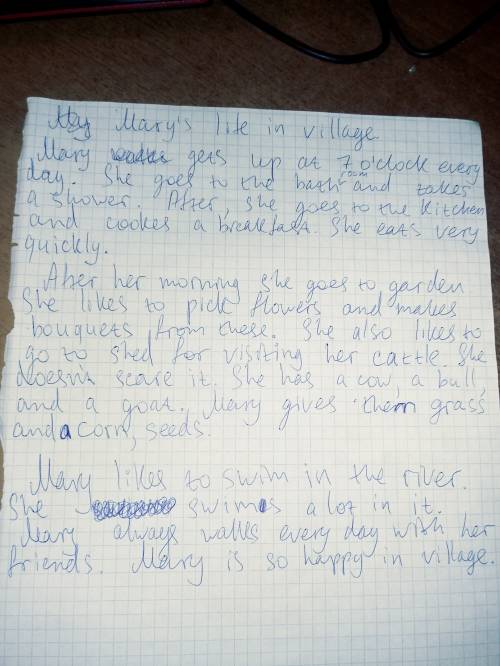 Mary's life in village
Mary gets up at 7 o'clock every
day. She goes to the bathroom and takes
a shower. After, she goes to the kitchen
and cookes a breakfast. She eats very
quickly.
After her morning she goes to garden
She likes to pick flowers and makes
bouquets from these. She also likes to
go to shed for visiting her cattle. She
doesn't scare it. She has a cow, a bull,
and a goat. Mary gives them grass
and a corn, seeds.
Mary likes to swim in the river.
She swims a lot in it.
Mary always walks every day with her
friends. Mary is so happy in village.